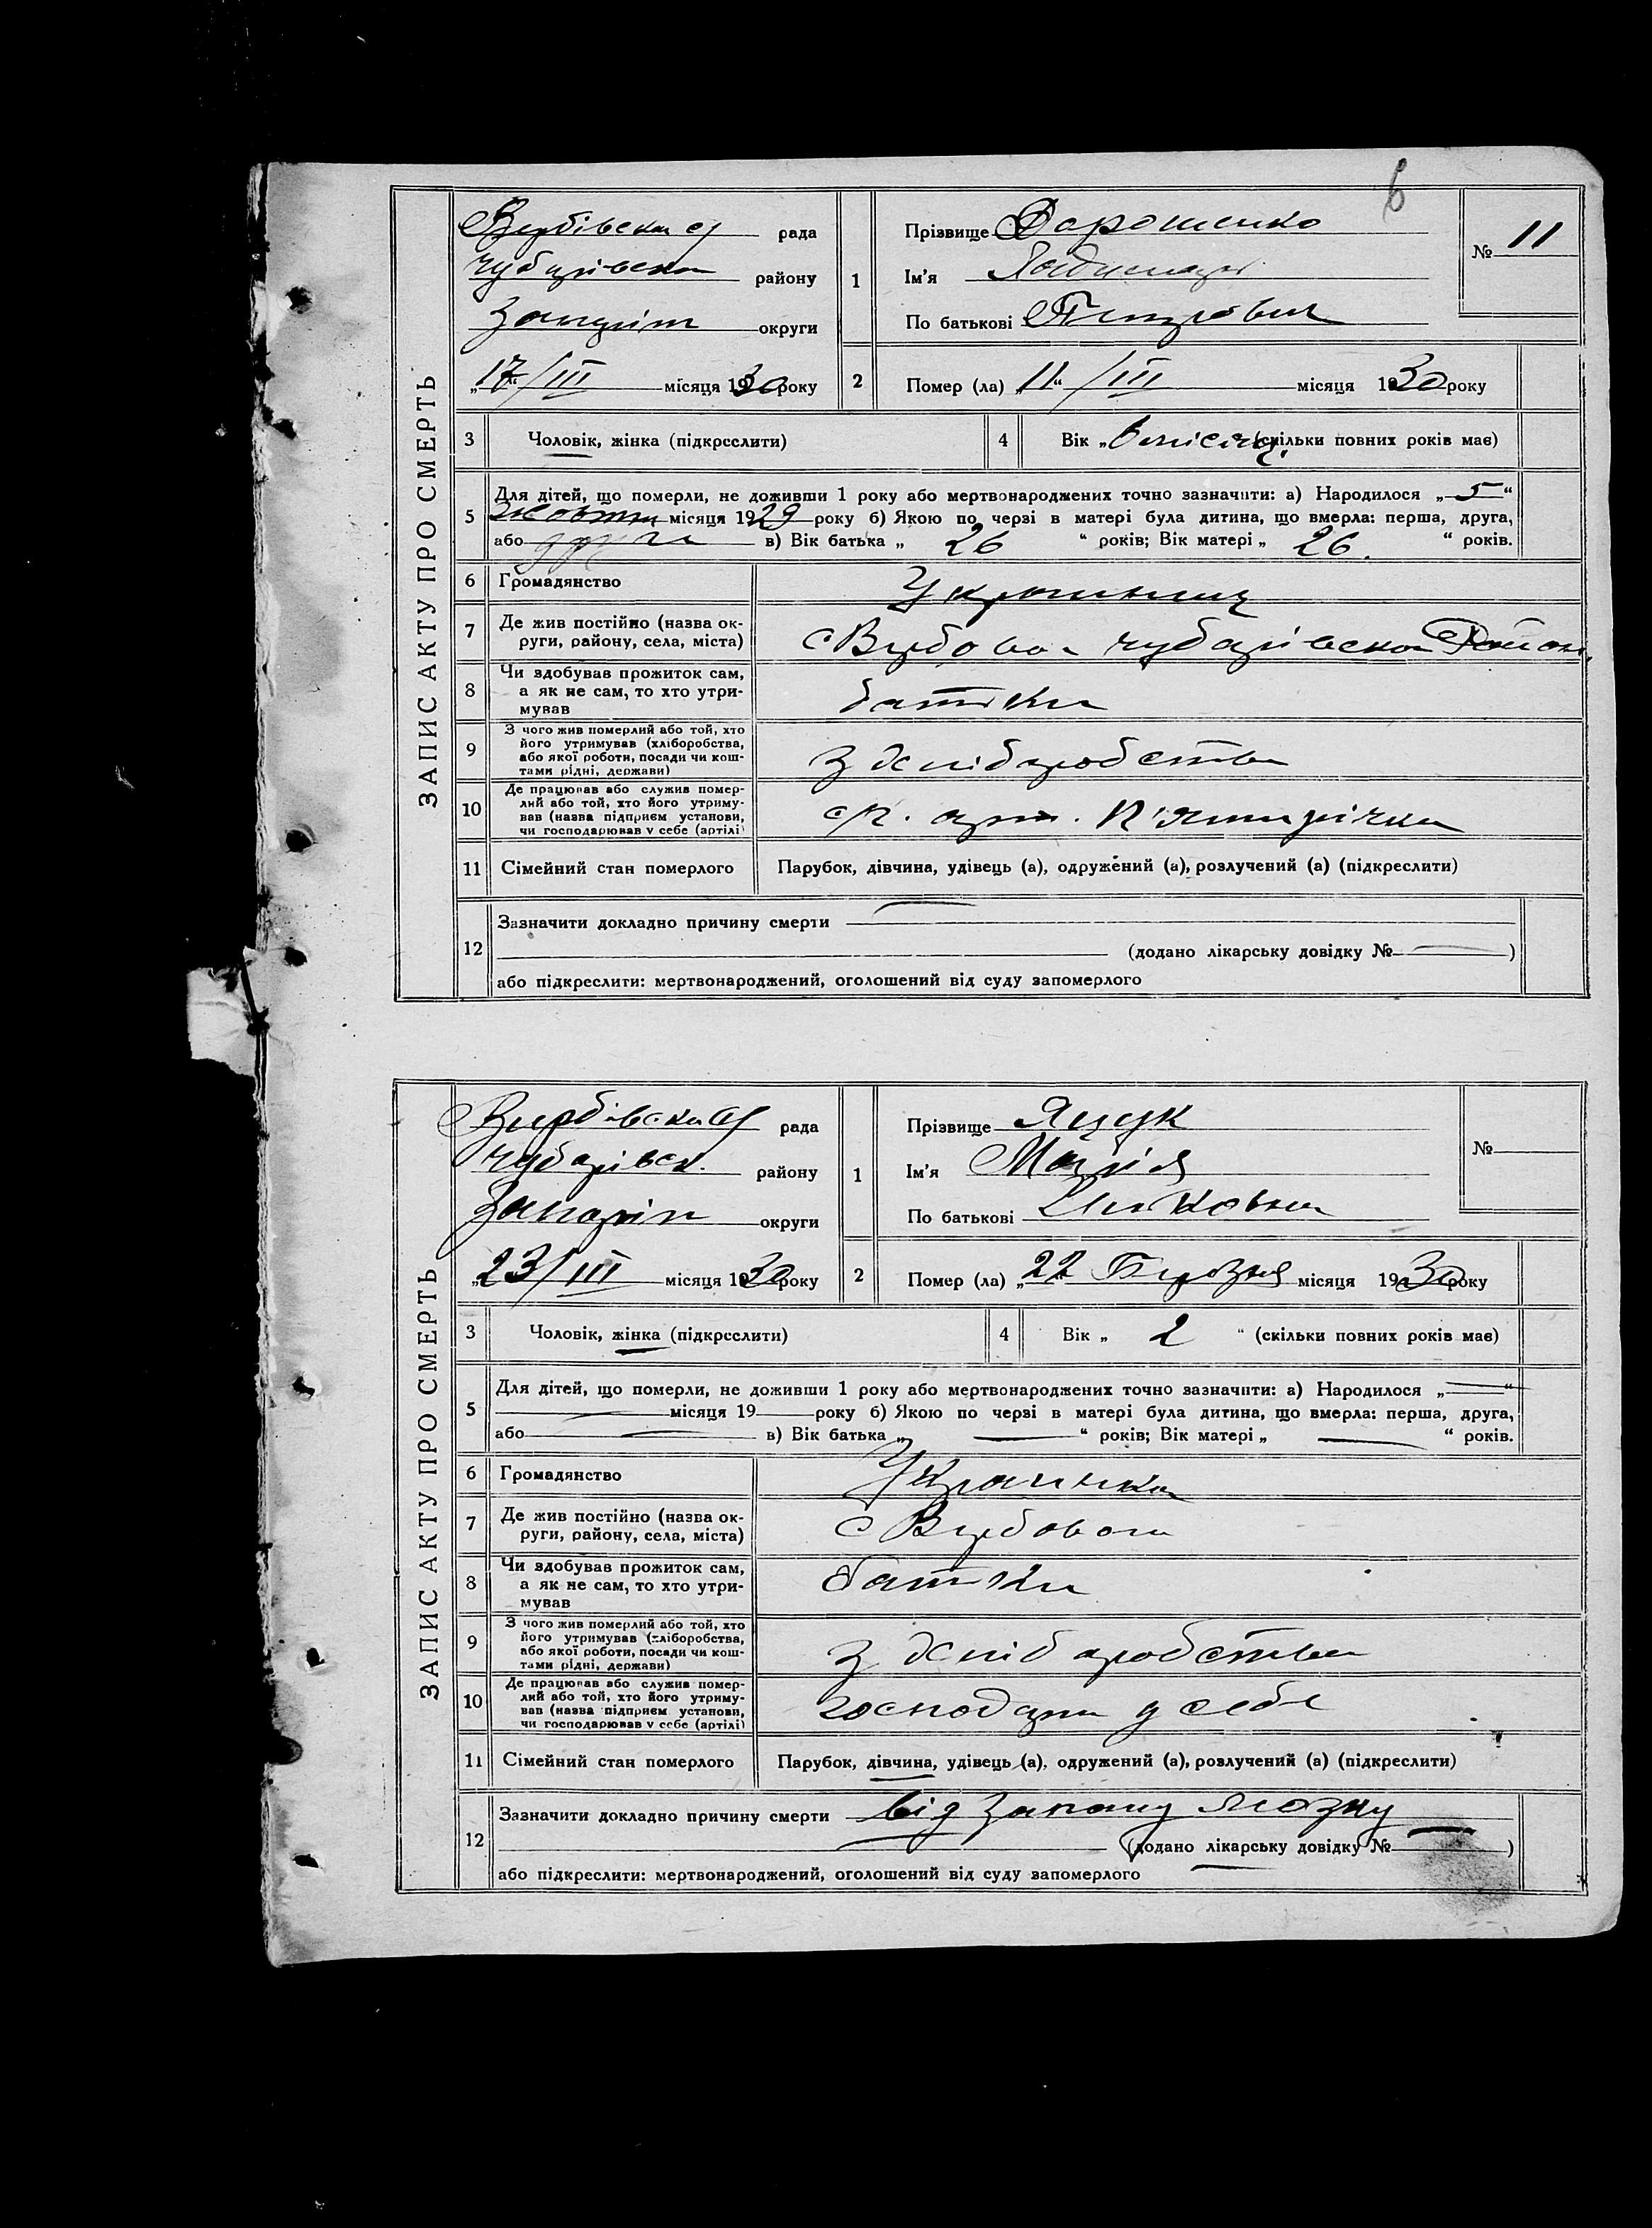 6
ЗАПИС АКТУ ПРО СМЕРТЬ
Вербівська с/ рада
Чубарівськ району
Запоріж округи
„17“/III місяця 1930 року
1 Прізвище Дорошенко
Ім'я
По батькові Петрович
№ 11
2 Помер (ла) „11“ /III місяця 1930 року
3 Чоловік, жінка (підкреслити)
4 Вік „6 місяц. (скільки повних років має)
5 Для дітей, що померли, не доживши 1 року або мертвонароджених точно зазначити: а) Народилося „5“
Жовтня місяця 1929 року б) Якою по черзі в матері була дитина, що вмерла: перша, друга,
або друга в) Вік батька „ 26 “ років; Вік матері „ 26. “ років.
6 Громадянство Українець
7 Де жив постійно (назва округи, району, села, міста) с Вербова Чубарівськ Район.
8 Чи здобував прожиток сам,
а як не сам, то хто утри-
мував батьки
9 З чого жив померлий або той, хто
його утримував (хліборобства,
або якої роботи, посади чи кош-
тами рідні, держави) З хліборобства
10 Де працював або служив помер-
лий або той, хто його утриму-
вав (назва підприєм установи,
чи господарював у себе (артілі) с/г. арт. П'ятирічка
11 Сімейний стан померлого Парубок, дівчина, удівець (а), одружений (а), розлучений (а) (підкреслити)
12 Зазначити докладно причину смерти
(додано лікарську довідку № )
або підкреслити: мертвонароджений, оголошений від суду запомерлого
ЗАПИС АКТУ ПРО СМЕРТЬ
Вербівська с/ рада
Чубарівськ. району
Запоріж округи
„23/III місяця 1930 року
1 Прізвище Яцук
Ім'я Марія
По батькові
№
2 Помер (ла) „22 Березня місяця 1930 року
3 Чоловік, жінка (підкреслити)
4 Вік „ 2 “ (скільки повних років має)
5 Для дітей, що померли, не доживши 1 року або мертвонароджених точно зазначити: а) Народилося „ “
місяця 19 року б) Якою по черзі в матері була дитина, що вмерла: перша, друга,
або в) Вік батька „ “ років; Вік матері „ “ років.
6 Громадянство Українка
7 Де жив постійно (назва ок-
руги, району, села, міста) с Вербова
8 Чи здобував прожиток сам,
а як не сам, то хто утри-
мував батьки
9 З чого жив померлий або той, хто
його утримував (хліборобства,
або якої роботи, посади чи кош-
тами рідні, держави) З хліборобства
10 Де працював або служив помер-
лий або той, хто його утриму-
вав (назва підприєм установи,
чи господарював у себе (артілі) господари у себе
11 Сімейний стан померлого Парубок, дівчина, удівець (а), одружений (а), розлучений (а) (підкреслити)
12 Зазначити докладно причину смерти від Запалу Мозку
(додано лікарську довідку № )
або підкреслити: мертвонароджений, оголошений від суду запомерлого